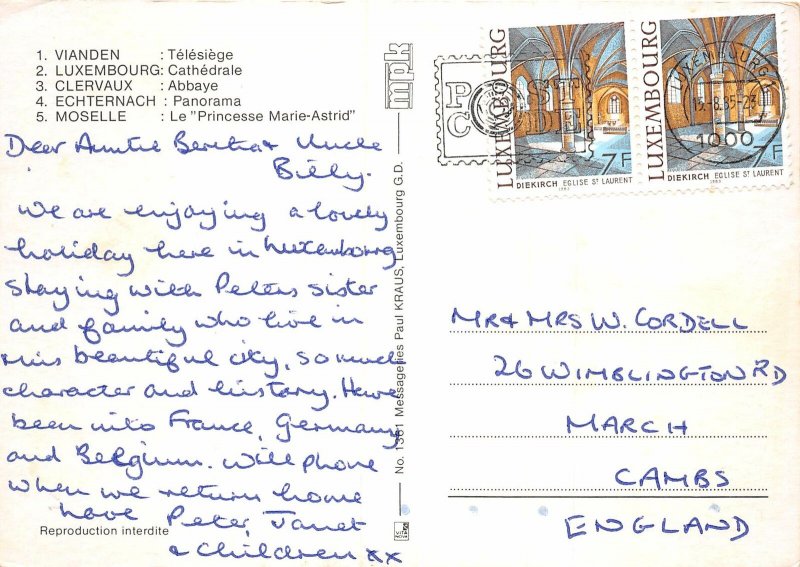 1. VIANDEN : Télésiège
2. LUXEMBOURG: Cathédrale
3. CLERVAUX : Abbaye
4. ECHTERNACH : Panorama
5. MOSELLE : Le "Princesse Marie-Astrid"
mpk
Dear Auntie Bertha & Uncle
Billy.
We are enjoying a lovely
holiday here in Luxembourg
staying with Peters sister
and family who live in
this beautiful city, so much
character and history. Have
been into France, Germany
and Belgium. Will phone
when we return home
love Peter, Janet
& Children xx
Reproduction interdite
No. 1361 Messageries Paul KRAUS, Luxembourg G.D.
LUXEMBOURG
7F
DIEKIRCH EGLISE ST LAURENT
LUXEMBOURG
7F
DIEKIRCH EGLISE ST LAURENT
LUXEMBOURG
1000
MR & MRS W. CORDELL
26 WIMBLINGTON RD
MARCH
CAMBS
ENGLAND